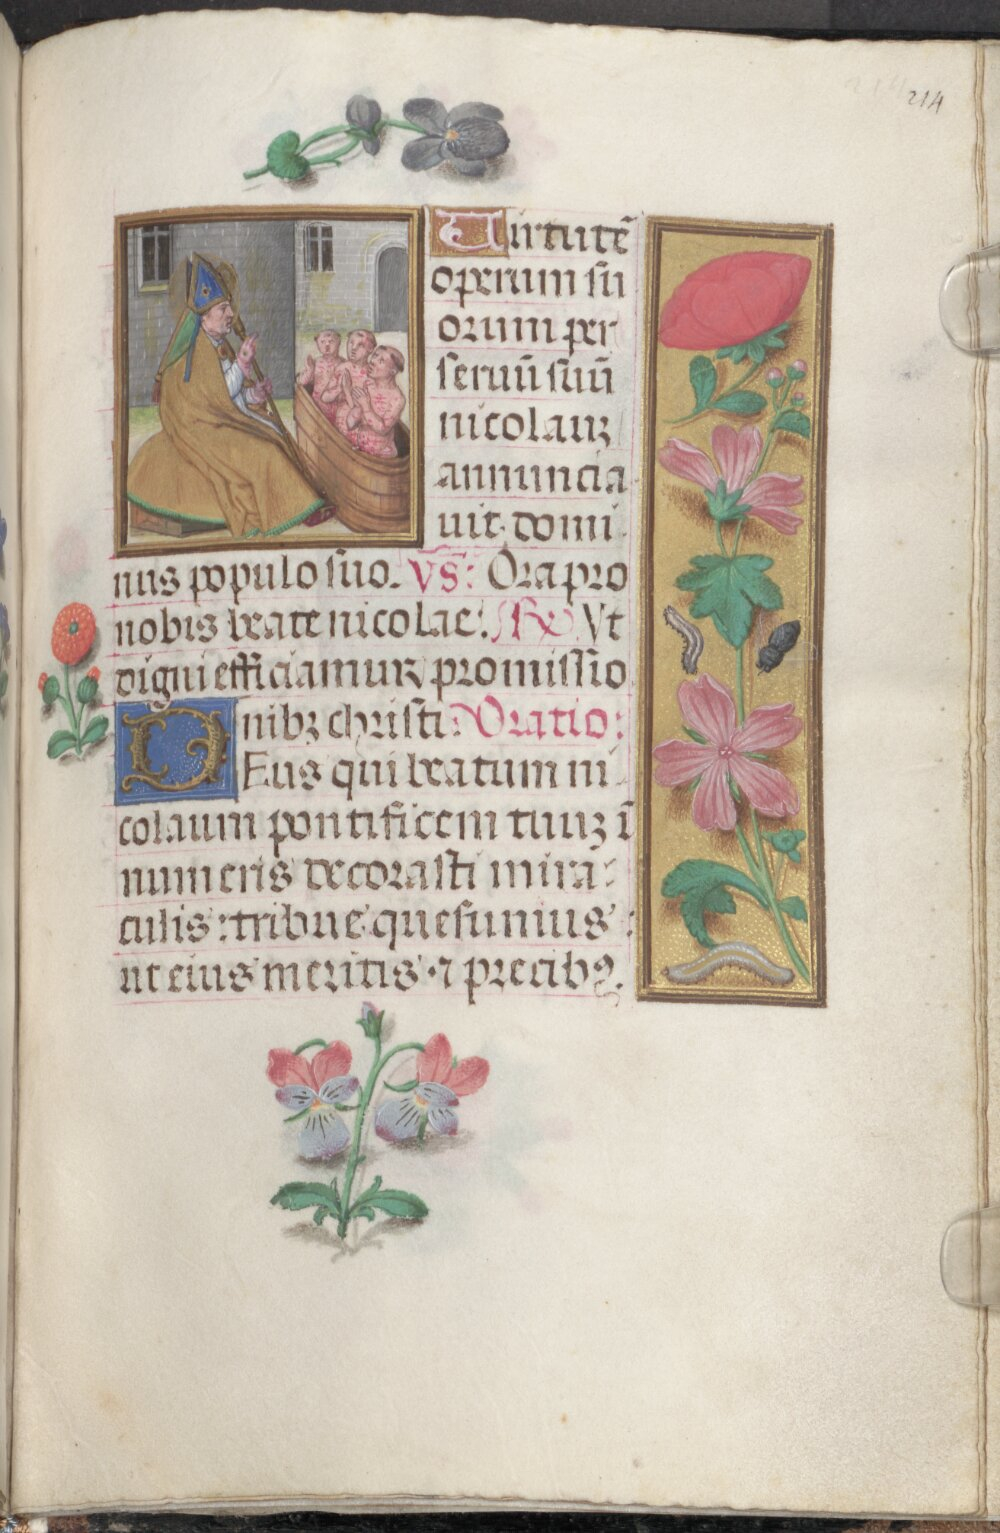 214
Virtutē
operum su
orum per
seruū suū
nicolauꝫ
annuncia
uit domi
nus populo suo. Vs: Ora pro
nobis beate nicolae. ℟ Vt
digni efficiamur promissio
nibꝫ christi. Oratio:
Deus qui beatum ni
colaum pontificem tuuꝫ ī
numeris decorasti mira
culis: tribue quesumus:
ut eius meritis ⁊ precibꝰ.